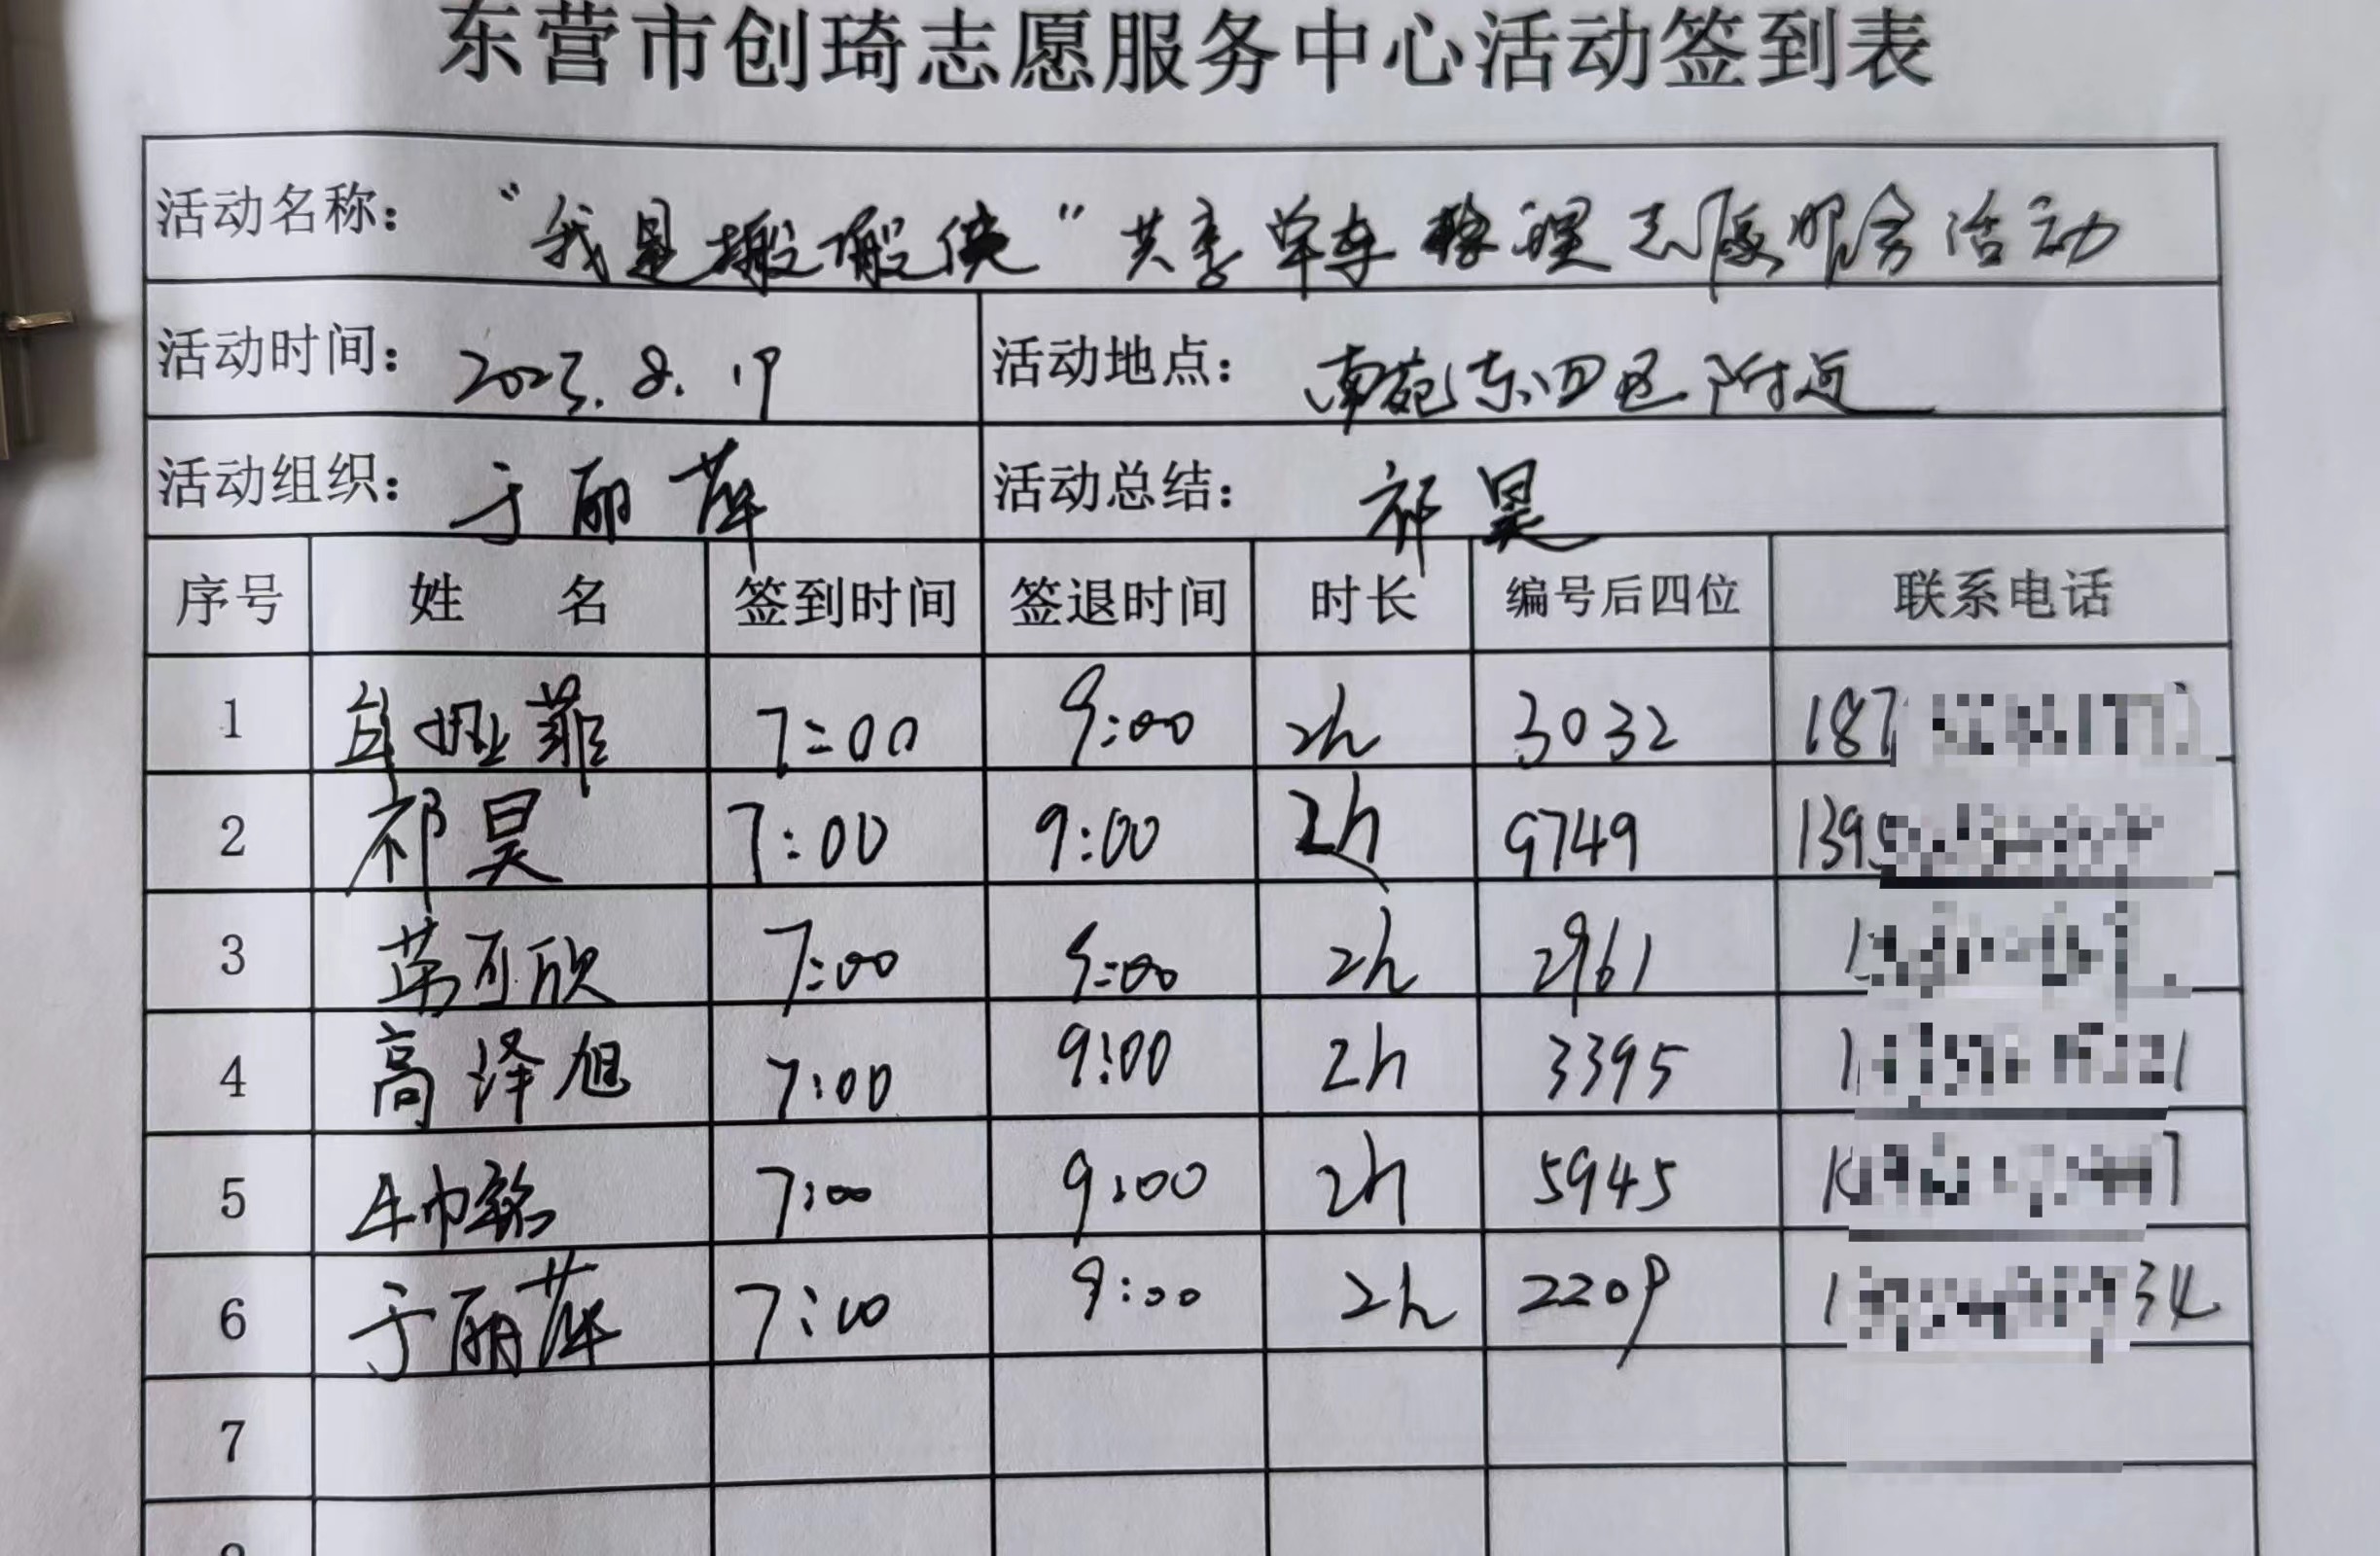 东营市创琦志愿服务中心活动签到表
活动名称： “我是搬搬侠”共享单车整理志愿服务活动
活动时间： 2023.8.19 活动地点： 南苑东四区附近
活动组织： 于丽萍 活动总结： 祁昊
序号 姓 名 签到时间 签退时间 时长 编号后四位 联系电话
1 7:00 9:00 2h 3032 187
2 祁昊 7:00 9:00 2h 9749 139
3 7:00 9:00 2h 2961 1
4 高泽旭 7:00 9:00 2h 3395 1
5 7:00 9:00 2h 5945 1
6 于丽萍 7:00 9:00 2h 2209 1 34
7